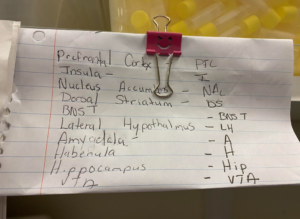 Prefrontal Cortex - PFC
Insula - I
Nucleus Accumbens - NAc
Dorsal Striatum - DS
BNST - BNST
Lateral Hypothalmus - LH
Amygdala - A
Habenula - H
Hippocampus - Hip
VTA - VTA